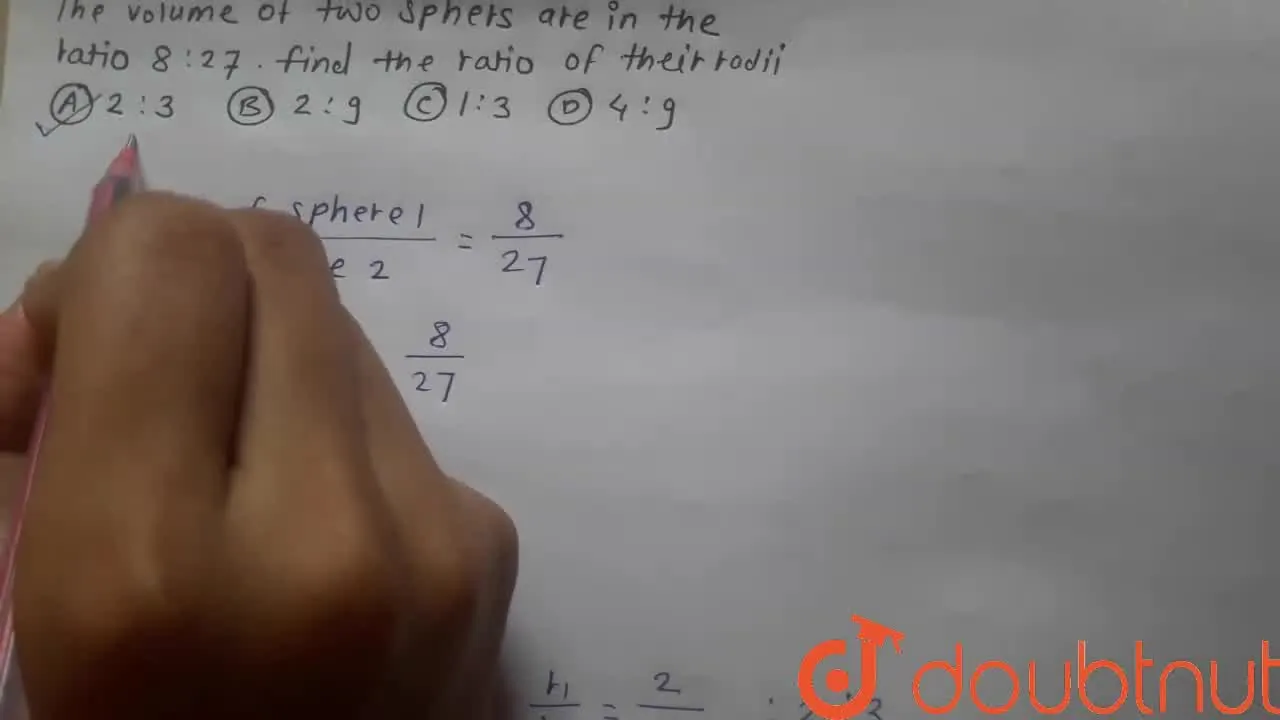 The volume of two sphers are in the
ratio 8:27. find the ratio of their radii
A 2:3 B 2:9 C 1:3 D 4:9
sphere 1
2
= 8/27
8/27
r1 = 2
doubtnut